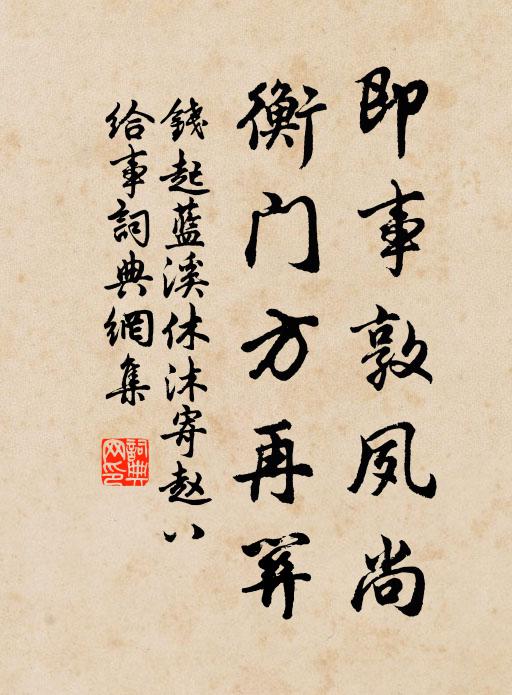 即事敦夙尚
衡门方再关
錢起蓝溪休沐寄赵八
给事詞典網集
詞典网印